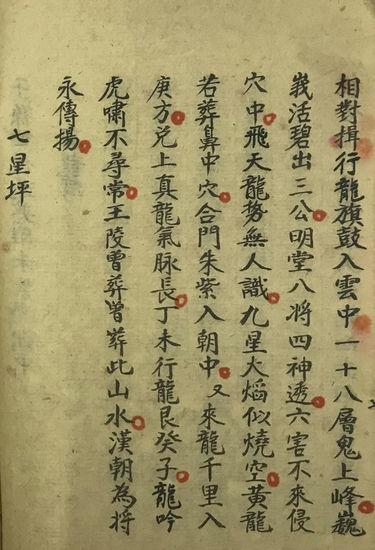 相對揖行龍旗鼓入雲中一十八層鬼上峰巍
峩活碧出三公明堂八将四神透六害不來侵
穴中飛天龍勢無人識九星大熖似燒空黄龍
若葬鼻中穴合門朱紫入朝中又來龍千里入
庚方兌上真龍氣脉長丁未行龍艮癸子龍吟
虎嘯不尋常王陵曾葬曾葬此山水漢朝為将
永傳揚
七星坪